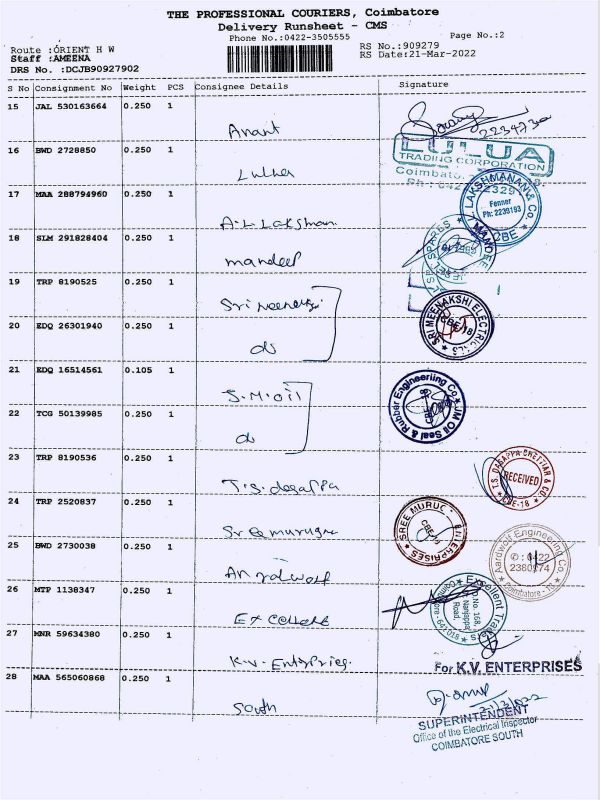 THE PROFESSIONAL COURIERS, Coimbatore
Delivery Runsheet - CMS
Phone No.:0422-3505555
Page No.:2
Route :ORIENT H W
RS No.:909279
Staff :AMEENA
RS Date:21-Mar-2022
DRS No. :DCJB90927902
S No Consignment No Weight PCS Consignee Details Signature
15 JAL 530163664 0.250 1
Anant
2234730
16 BWD 2728850 0.250 1
Lulua
LULUA
TRADING CORPORATION
17 MAA 288794960 0.250 1
A.L. Lakshman
L. LAKSHMANAN & Co.
Fenner
Ph: 2239193
CBE
18 SLM 291828404 0.250 1
mandeep
19 TRP 8190525 0.250 1
Sri Meenakshi
20 EDQ 26301940 0.250 1
do
SRI MEENAKSHI ELECTRICALS
CBE-18
21 EDQ 16514561 0.105 1
J.M.oil
22 TCG 50139985 0.250 1
do
JM Oil Seal & Rubber Engineering Co.
23 TRP 8190536 0.250 1
T.S. dasappa
T.S. DASAPPA CHETTIAR & CO.
RECEIVED
CBE-18
24 TRP 2520837 0.250 1
Sree murugan
SREE MURUGAN ENTERPRISES
25 BWD 2730038 0.250 1
Aardwolf
Aardwolf Engineering Co.
✆: 0422
2380974
Coimbatore - 18
26 MTP 1138347 0.250 1
Excellent
Excellent Traders
No. 168,
Nanjappa
Road,
27 MNR 59634380 0.250 1
K.V. Enterprises.
For K.V. ENTERPRISES
28 MAA 565060868 0.250 1
South
SUPERINTENDENT
Office of the Electrical Inspector
COIMBATORE SOUTH